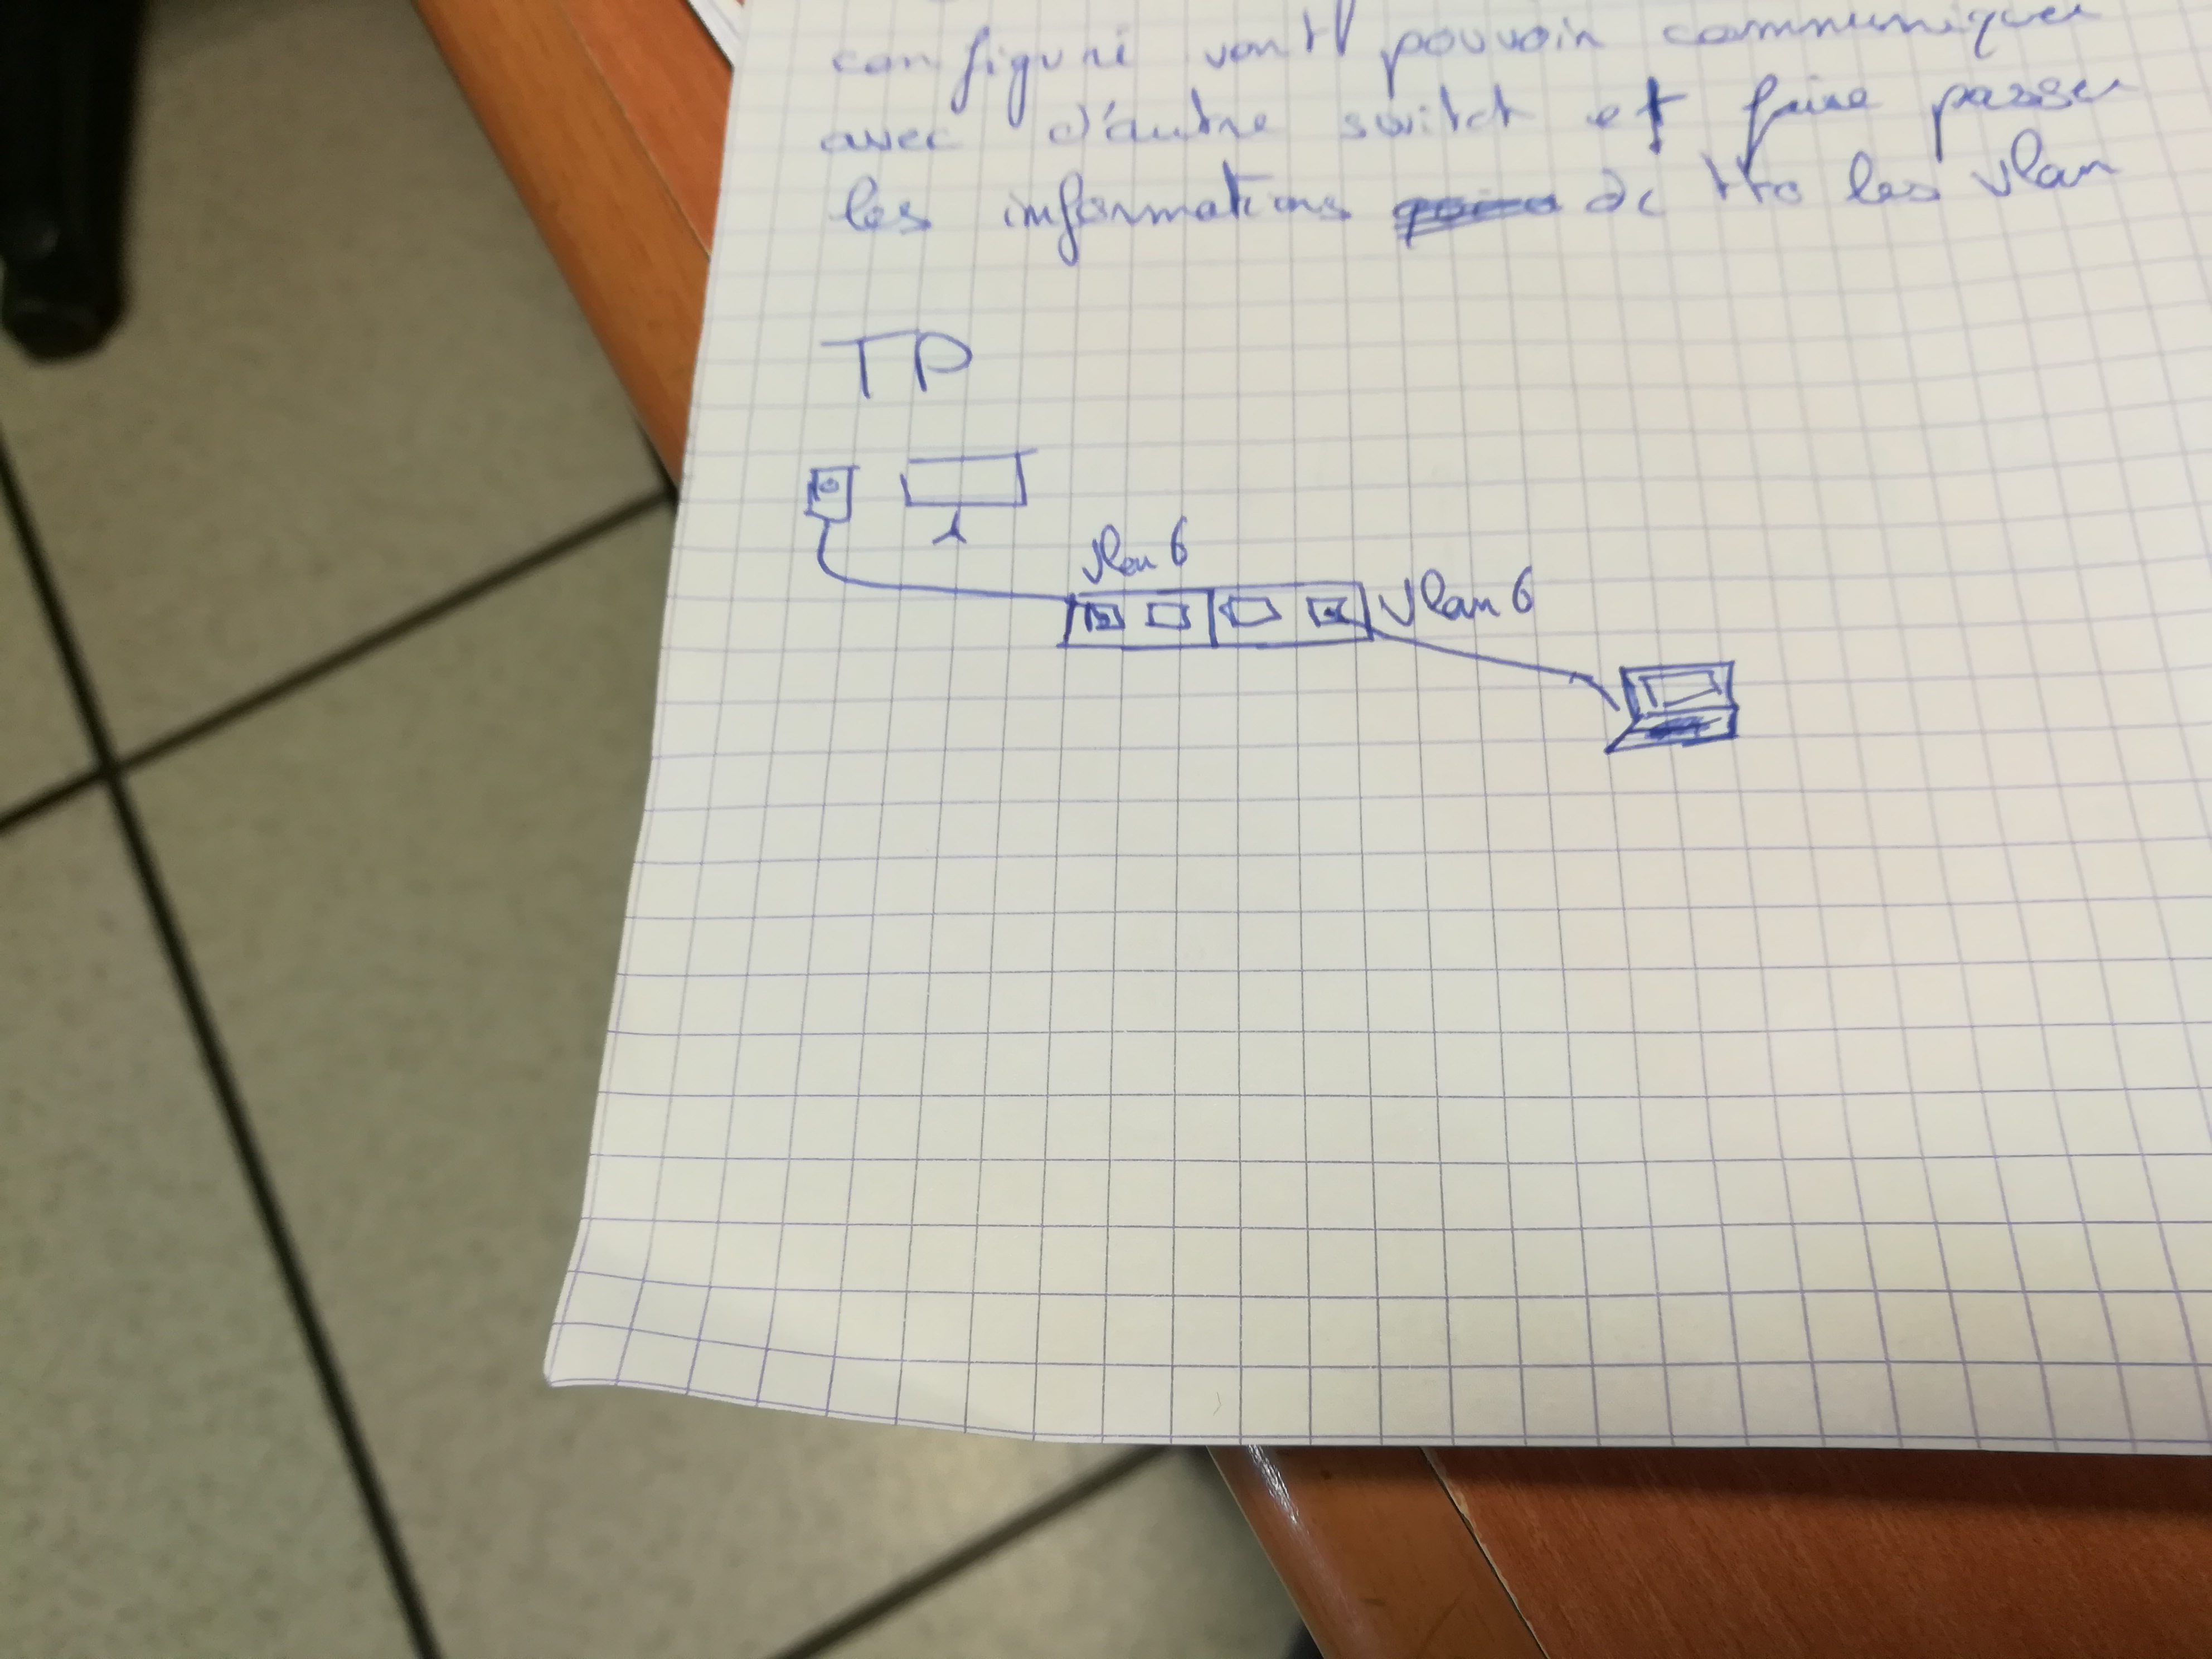 configuré vont pouvoir communiquer
avec d'autre switch et faire passer
les informations de tts les vlan
TP
vlan 6
vlan 6